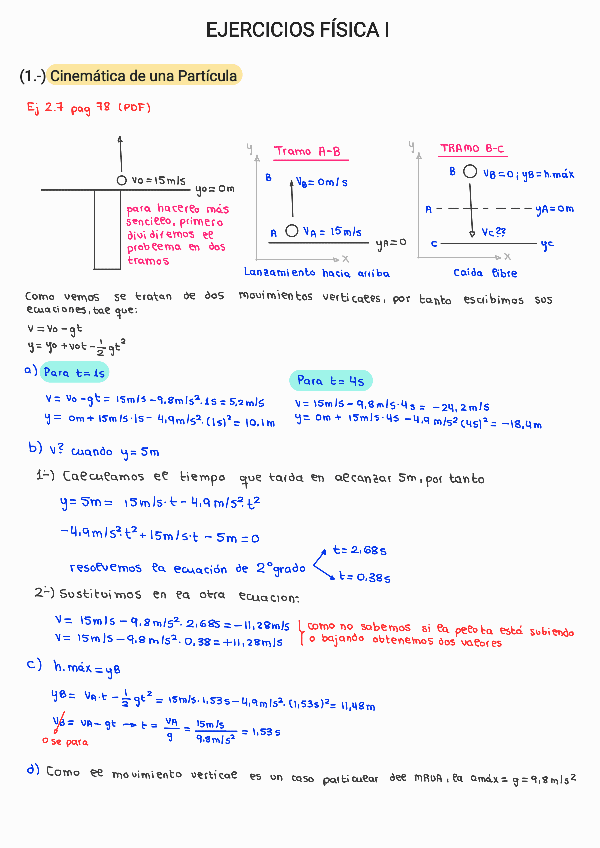 EJERCICIOS FÍSICA I
(1.-) Cinemática de una Partícula
Ej 2.7 pag 78 (PDF)
vo = 15m/s
yo = 0m
para hacerlo más
sencillo, primero
dividiremos el
problema en dos
tramos
y
Tramo A-B
B
VB = 0m/s
A
VA = 15m/s
yA = 0
x
Lanzamiento hacia arriba
y
TRAMO B-C
B
VB = 0 ; yB = h.máx
A
yA = 0m
Vc??
C
yc
x
Caída libre
Como vemos se tratan de dos movimientos verticales, por tanto escribimos sus
ecuaciones, tal que:
v = vo - gt
y = yo + vot - 1/2 gt²
a) Para t = 1s
Para t = 4s
v = vo - gt = 15m/s - 9,8m/s² · 1s = 5,2m/s
v = 15m/s - 9,8m/s · 4s = -24,2m/s
y = 0m + 15m/s · 1s - 4,9m/s² · (1s)² = 10.1m
y = 0m + 15m/s · 4s - 4,9 m/s² (4s)² = -18,4m
b) v? cuando y = 5m
1-) Calculamos el tiempo que tarda en alcanzar 5m, por tanto
y = 5m = 15m/s · t - 4,9m/s² · t²
-4,9m/s² · t² + 15m/s · t - 5m = 0
t = 2,68s
resolvemos la ecuación de 2º grado
t = 0,38s
2-) Sustituimos en la otra ecuacion:
v = 15m/s - 9,8m/s² · 2,68s = -11,28m/s
v = 15m/s - 9,8m/s² · 0,38 = +11,28m/s
como no sabemos si la pelota está subiendo
o bajando obtenemos dos valores
c) h.máx = yB
yB = VA · t - 1/2 gt² = 15m/s · 1,53s - 4,9m/s² · (1,53s)² = 11,48m
VB = VA - gt → t = VA/g = 15m/s / 9.8m/s² = 1,53s
0 se para
d) Como el movimiento vertical es un caso particular del MRUA, la amáx = g = 9,8m/s²